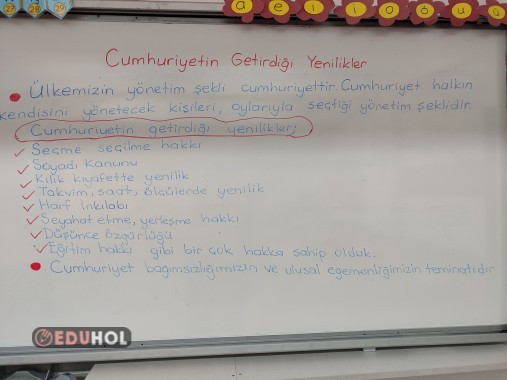 27 28 29
a e ı i o ö u ü
Cumhuriyetin Getirdiği Yenilikler
Ülkemizin yönetim şekli cumhuriyettir. Cumhuriyet halkın
kendisini yönetecek kişileri, oylarıyla seçtiği yönetim şeklidir.
Cumhuriyetin getirdiği yenilikler;
Seçme seçilme hakkı
Soyadı Kanunu
Kılık kıyafette yenilik
Takvim, saat, ölçülerde yenilik
Harf İnkılabı
Seyahat etme, yerleşme hakkı
Düşünce özgürlüğü
Eğitim hakkı gibi bir çok hakka sahip olduk.
Cumhuriyet bağımsızlığımızın ve ulusal egemenliğimizin teminatıdır
EDUHOL